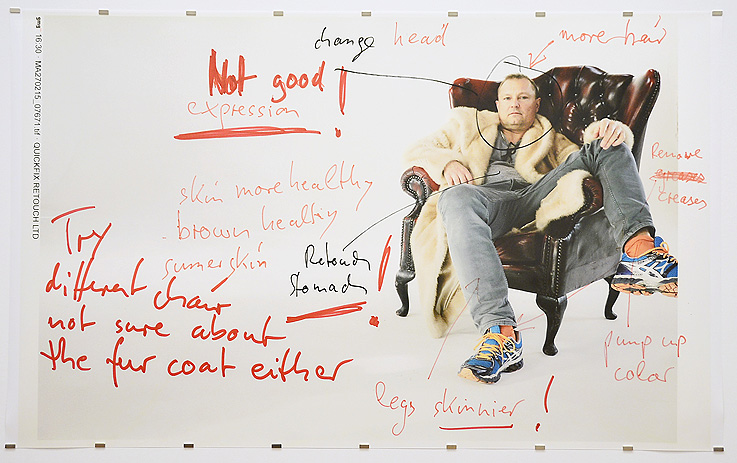 gmg 16:30 MA270215_07671.tif QUICKFIX RETOUCH LTD
change head
more hair
Not good!
expression
Remove
creases
skin more healthy
brown healthy
sumerskin
Retouch
Stomach!
Try
different chair
not sure about
the fur coat either
pump up
color
legs skinnier!